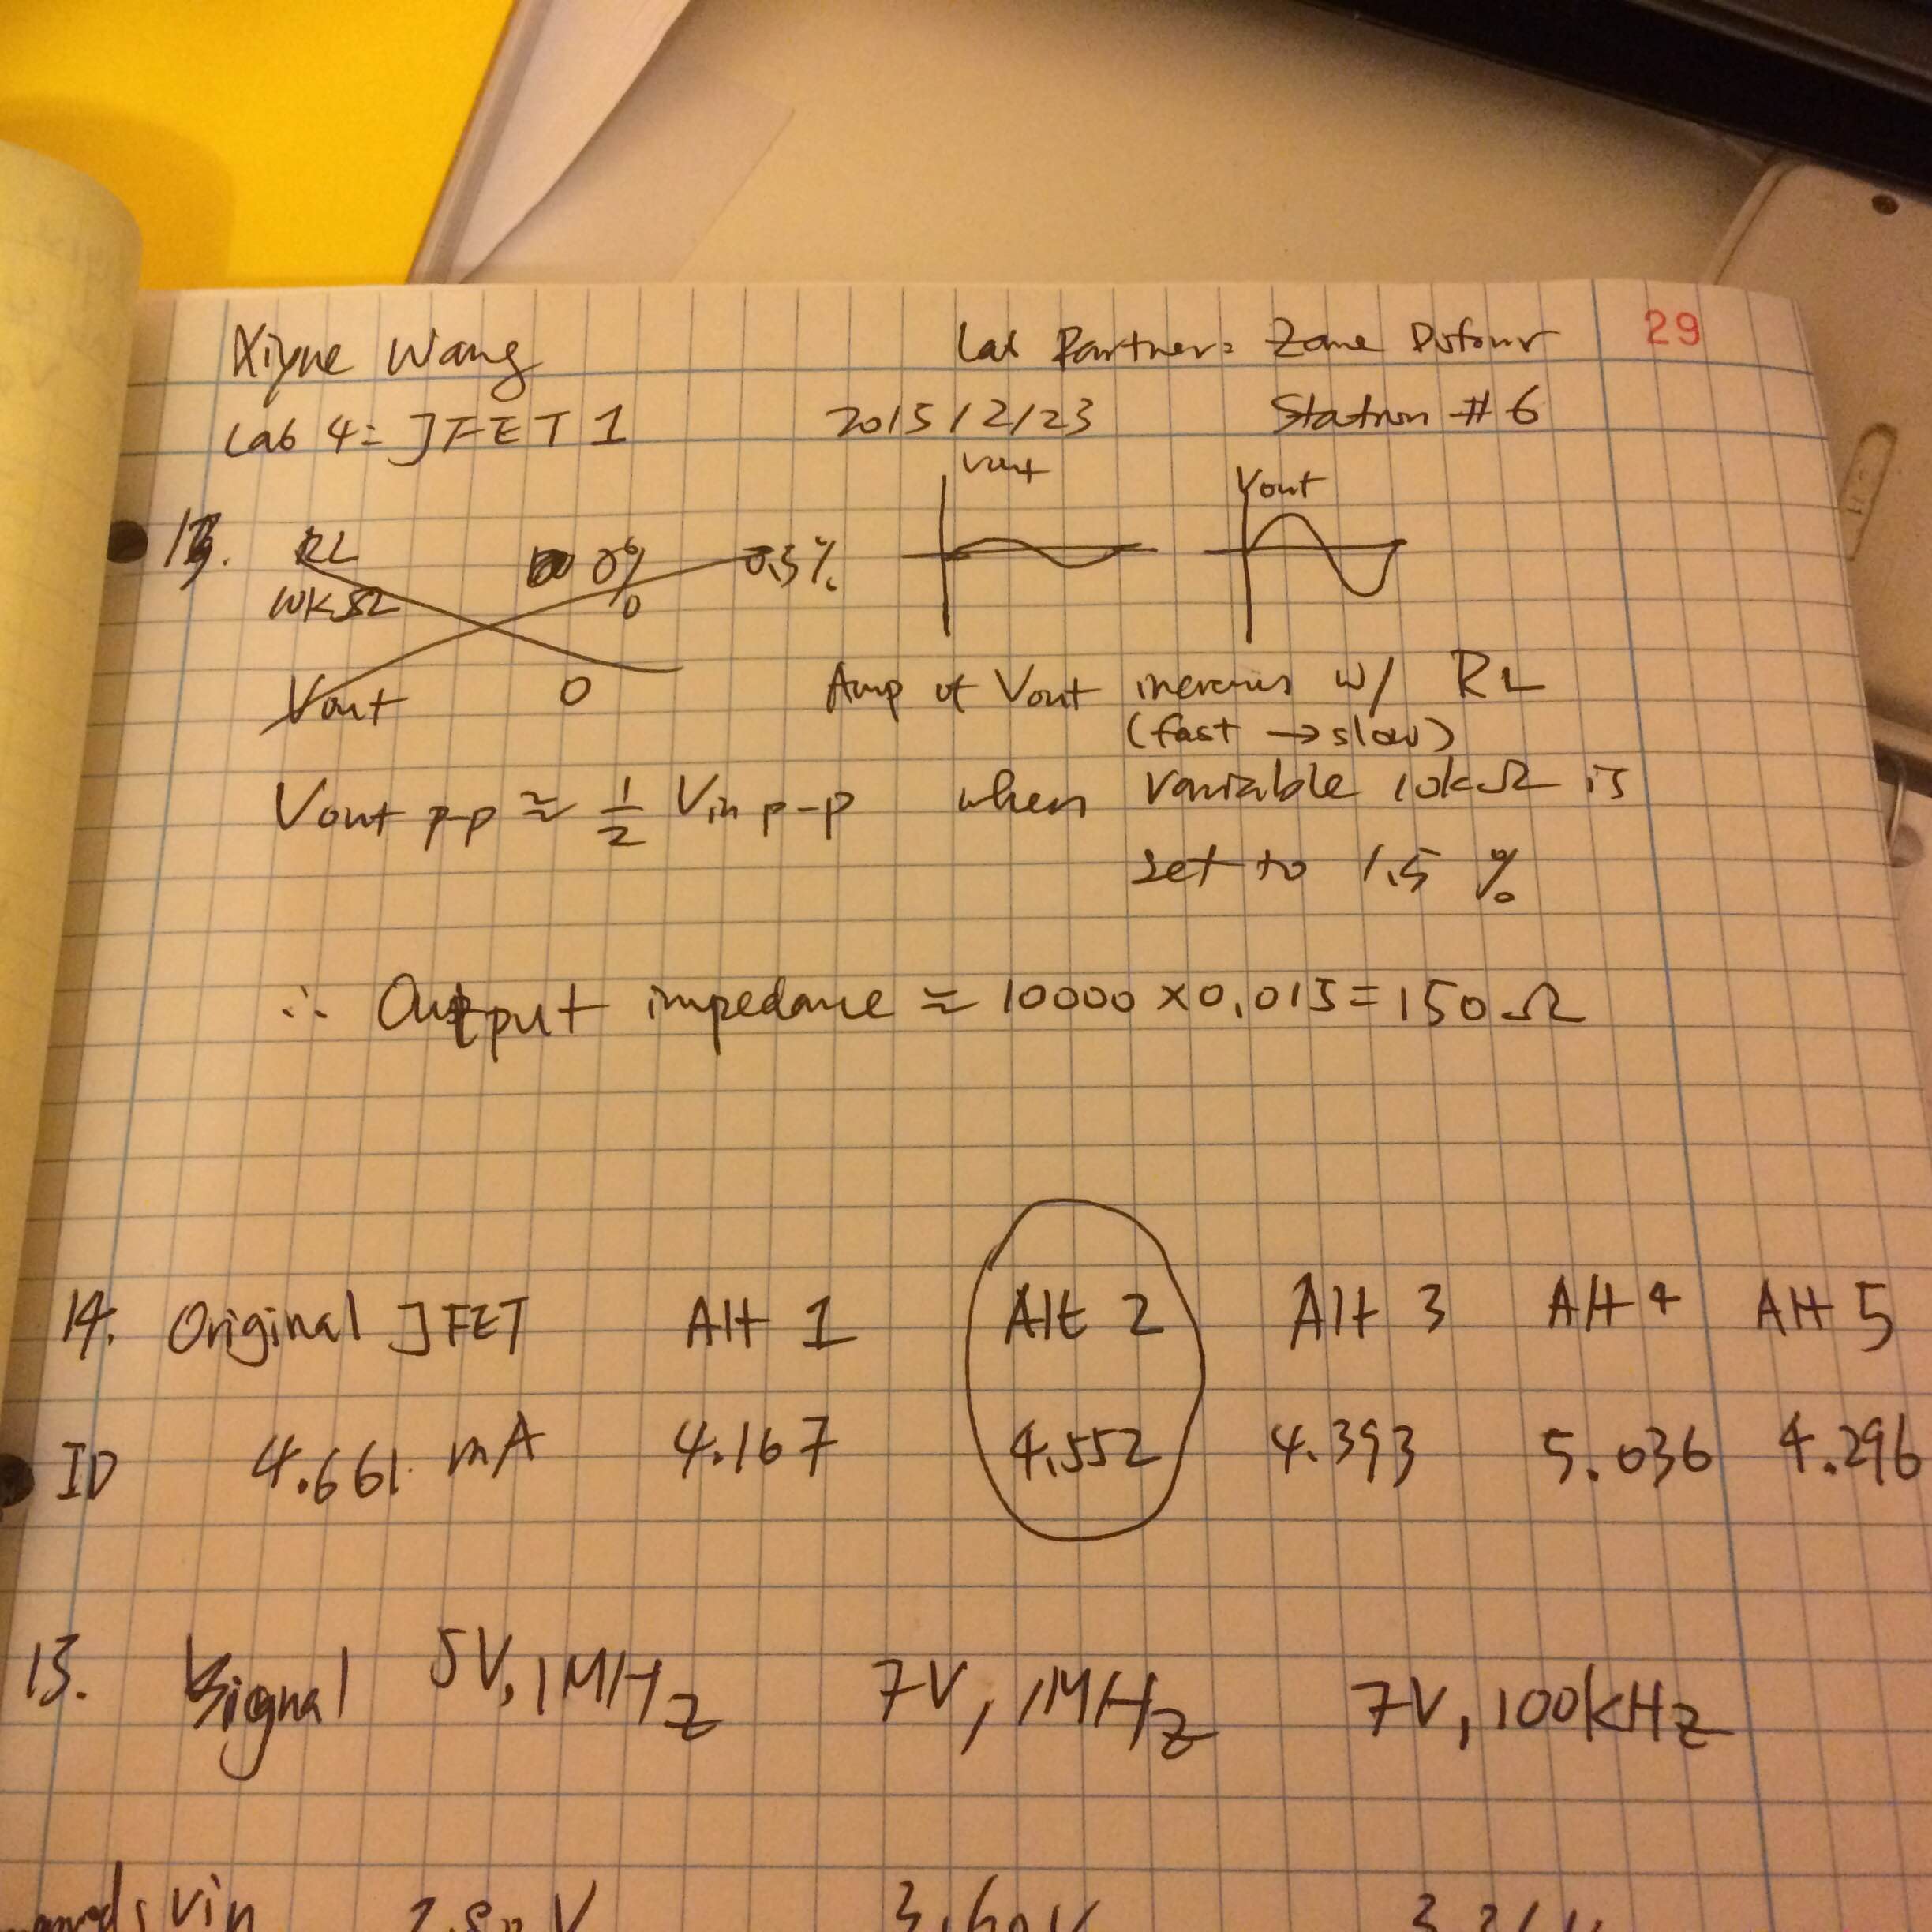 Xiyue Wang Lab Partner: Zane Dufour 29
Lab 4: JFET 1 2015/2/23 Station #6
Vout Vout
13. RL 0% 0.5%
10kΩ
Vout 0 Amp of Vout increases w/ RL
(fast → slow)
Vout p-p ≈ 1/2 Vin p-p when variable 10kΩ is
set to 1.5 %
∴ Output impedance ≈ 10000 × 0.015 = 150 Ω
14. Original JFET Alt 1 Alt 2 Alt 3 Alt 4 Alt 5
ID 4.661 mA 4.167 4.552 4.393 5.036 4.296
15. Signal 5V, 1MHz 7V, 1MHz 7V, 100kHz
Vin